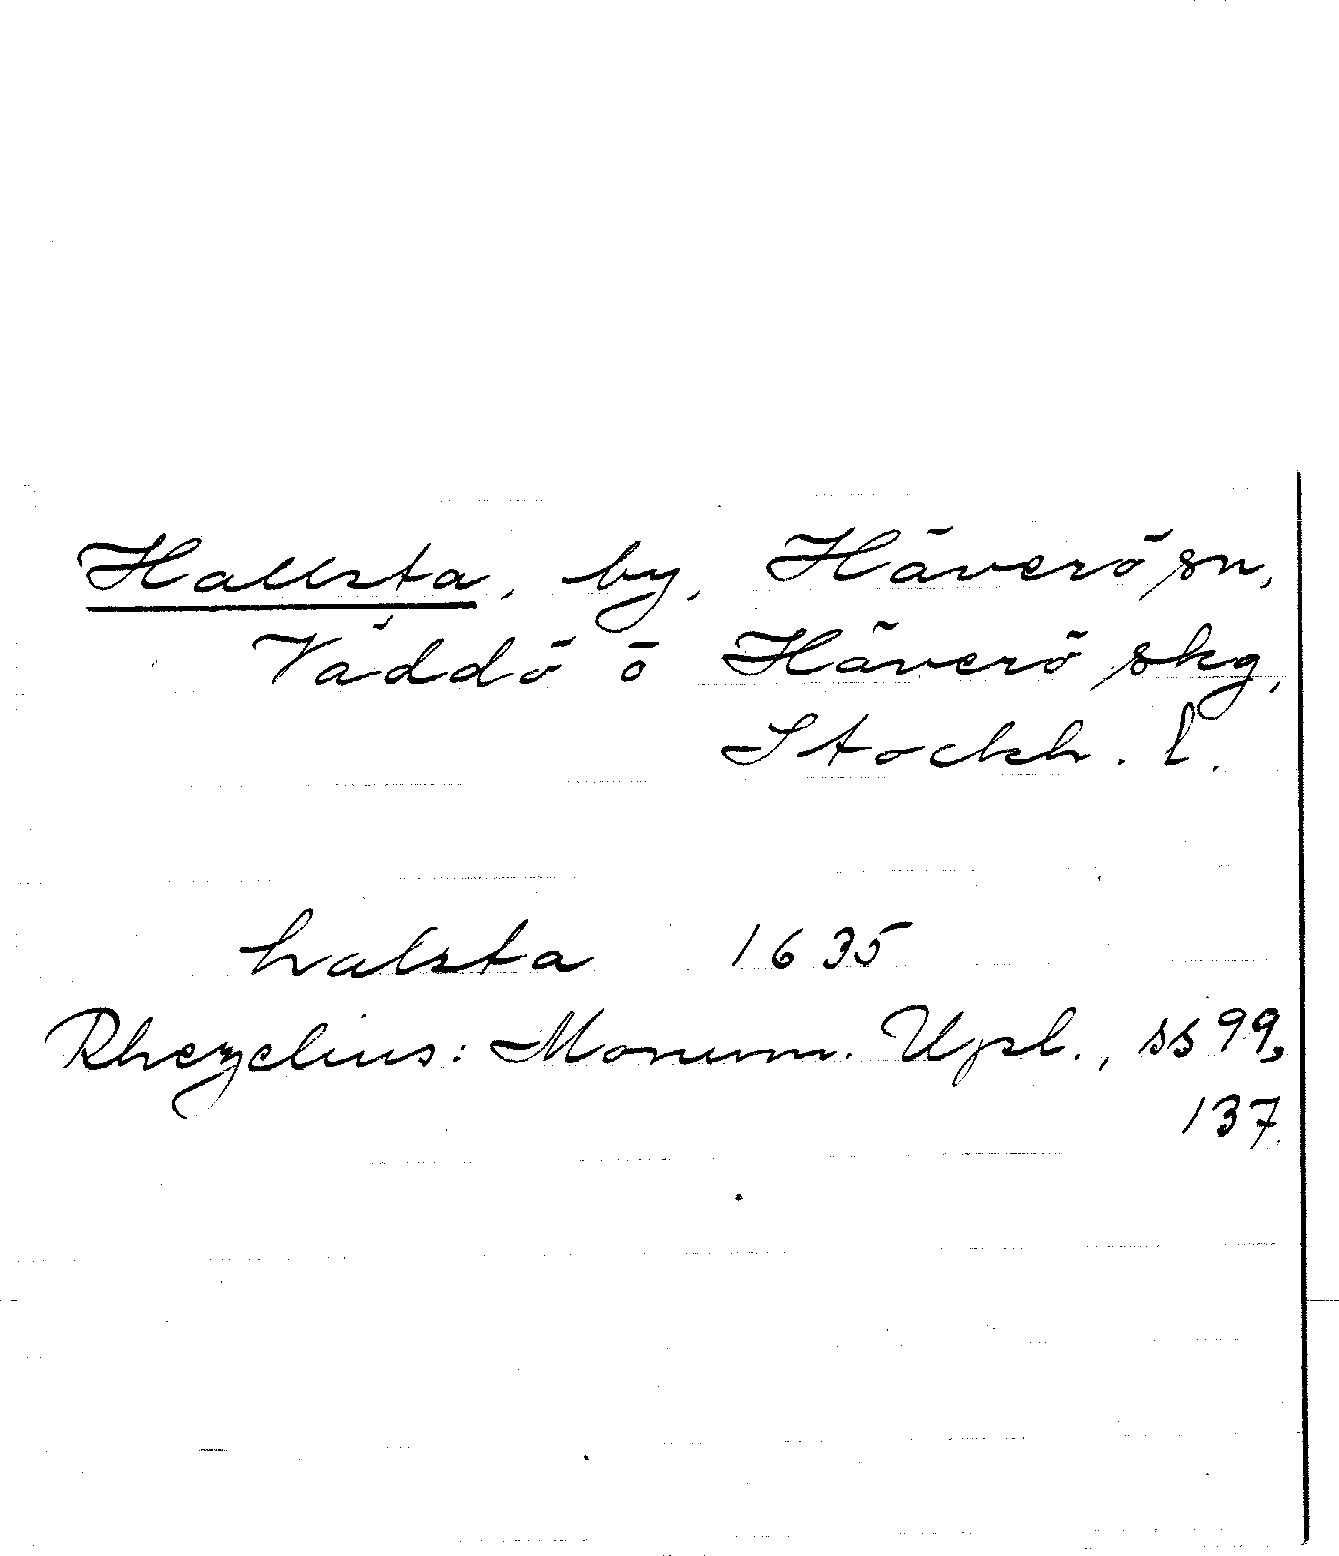 Hallsta, by, Häverö sn,
Väddö o Häverö skg,
Stockh. l.
halsta 1635
Rhezelius: Monum. Upl., ss 99,
137.